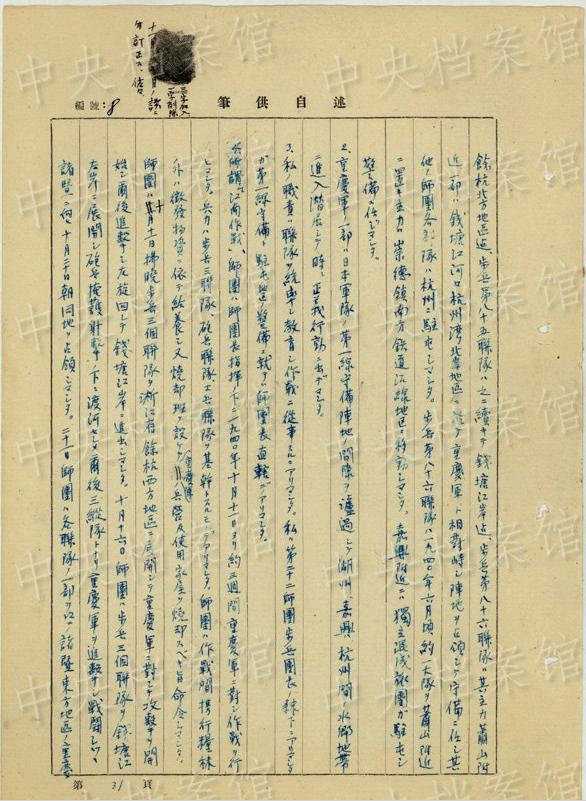 述自供筆
編號:8
餘杭北方地區迄、歩兵第八十五聯隊ハ之ニ續キテ錢塘江岸迄、歩兵第八十六聯隊ハ其主力蕭山附
近一部ハ錢塘江河口杭州湾北岸地區ニ於テ重慶軍ト相對峙シ陣地ヲ占領シテ守備ニ任シ其
他ノ師團各部隊ハ杭州ニ駐屯シマシタ。歩兵第八十六聯隊ハ一九四〇年六月頃約一大隊ヲ蕭山附近
ニ置キ主力ハ崇德鎮南方鉄道沿線地區ニ移動シマシタ。嘉興附近ニハ獨立混成旅團ガ駐屯シ
警備ニ任シマシタ。
2、重慶軍ノ一部ハ日本軍隊ノ第一線守備陣地ノ間隙ヲ濾過シテ湖州、嘉興、杭州間ノ水郷地帯
ニ進入潜居シテ時々正義行動ニ出デマシタ。
3、私ノ職責ハ聯隊ヲ統率シ教育シ作戰ニ從事スルニアリマシタ。私ハ第二十二師團歩兵團長ノ隷下ニアリマシタ
ガ第一線守備ト駐屯地ノ警備ニ就テハ師團長直轄デアリマシタ。
4、所謂江南作戰、師團ハ師團長指揮ノ下ニ一九四〇年十月十一日ヨリ約三週間重慶軍ニ對シ作戰ヲ行
ヒマシタ。兵力ハ歩兵三聯隊、砲兵聯隊、工兵聯隊ヲ基幹トスルモノデアリマシタ。師團ハ作戰間携行糧秣
ノ外ハ徴發物資ニ依テ給養シ又焼却班ヲ設ケテ重慶軍兵營及使用家屋ヲ焼却スベキ旨命令シマシタ。
師團ハ十月十日拂曉歩兵三個聯隊ヲ並ヘテ餘杭西方地區ニ展開シテ重慶軍ニ對シテ攻擊ヲ開
始シ爾後進擊シ左旋回シテ錢塘江岸ニ進出シマシタ。十月十六日師團ハ歩兵三個聯隊ヲ錢塘江
左岸ニ展開シ砲兵掩護射擊ノ下ニ渡河セシメ爾後三縱隊トナリ重慶軍ヲ進擊シ戰鬪シツヽ
諸曁ニ向ヒ十月二十日朝同地ヲ占領シマシタ。二十一日師團ハ各聯隊ノ一部ヲ以テ諸曁東方地區ノ重慶
第 31 頁
中央档案馆